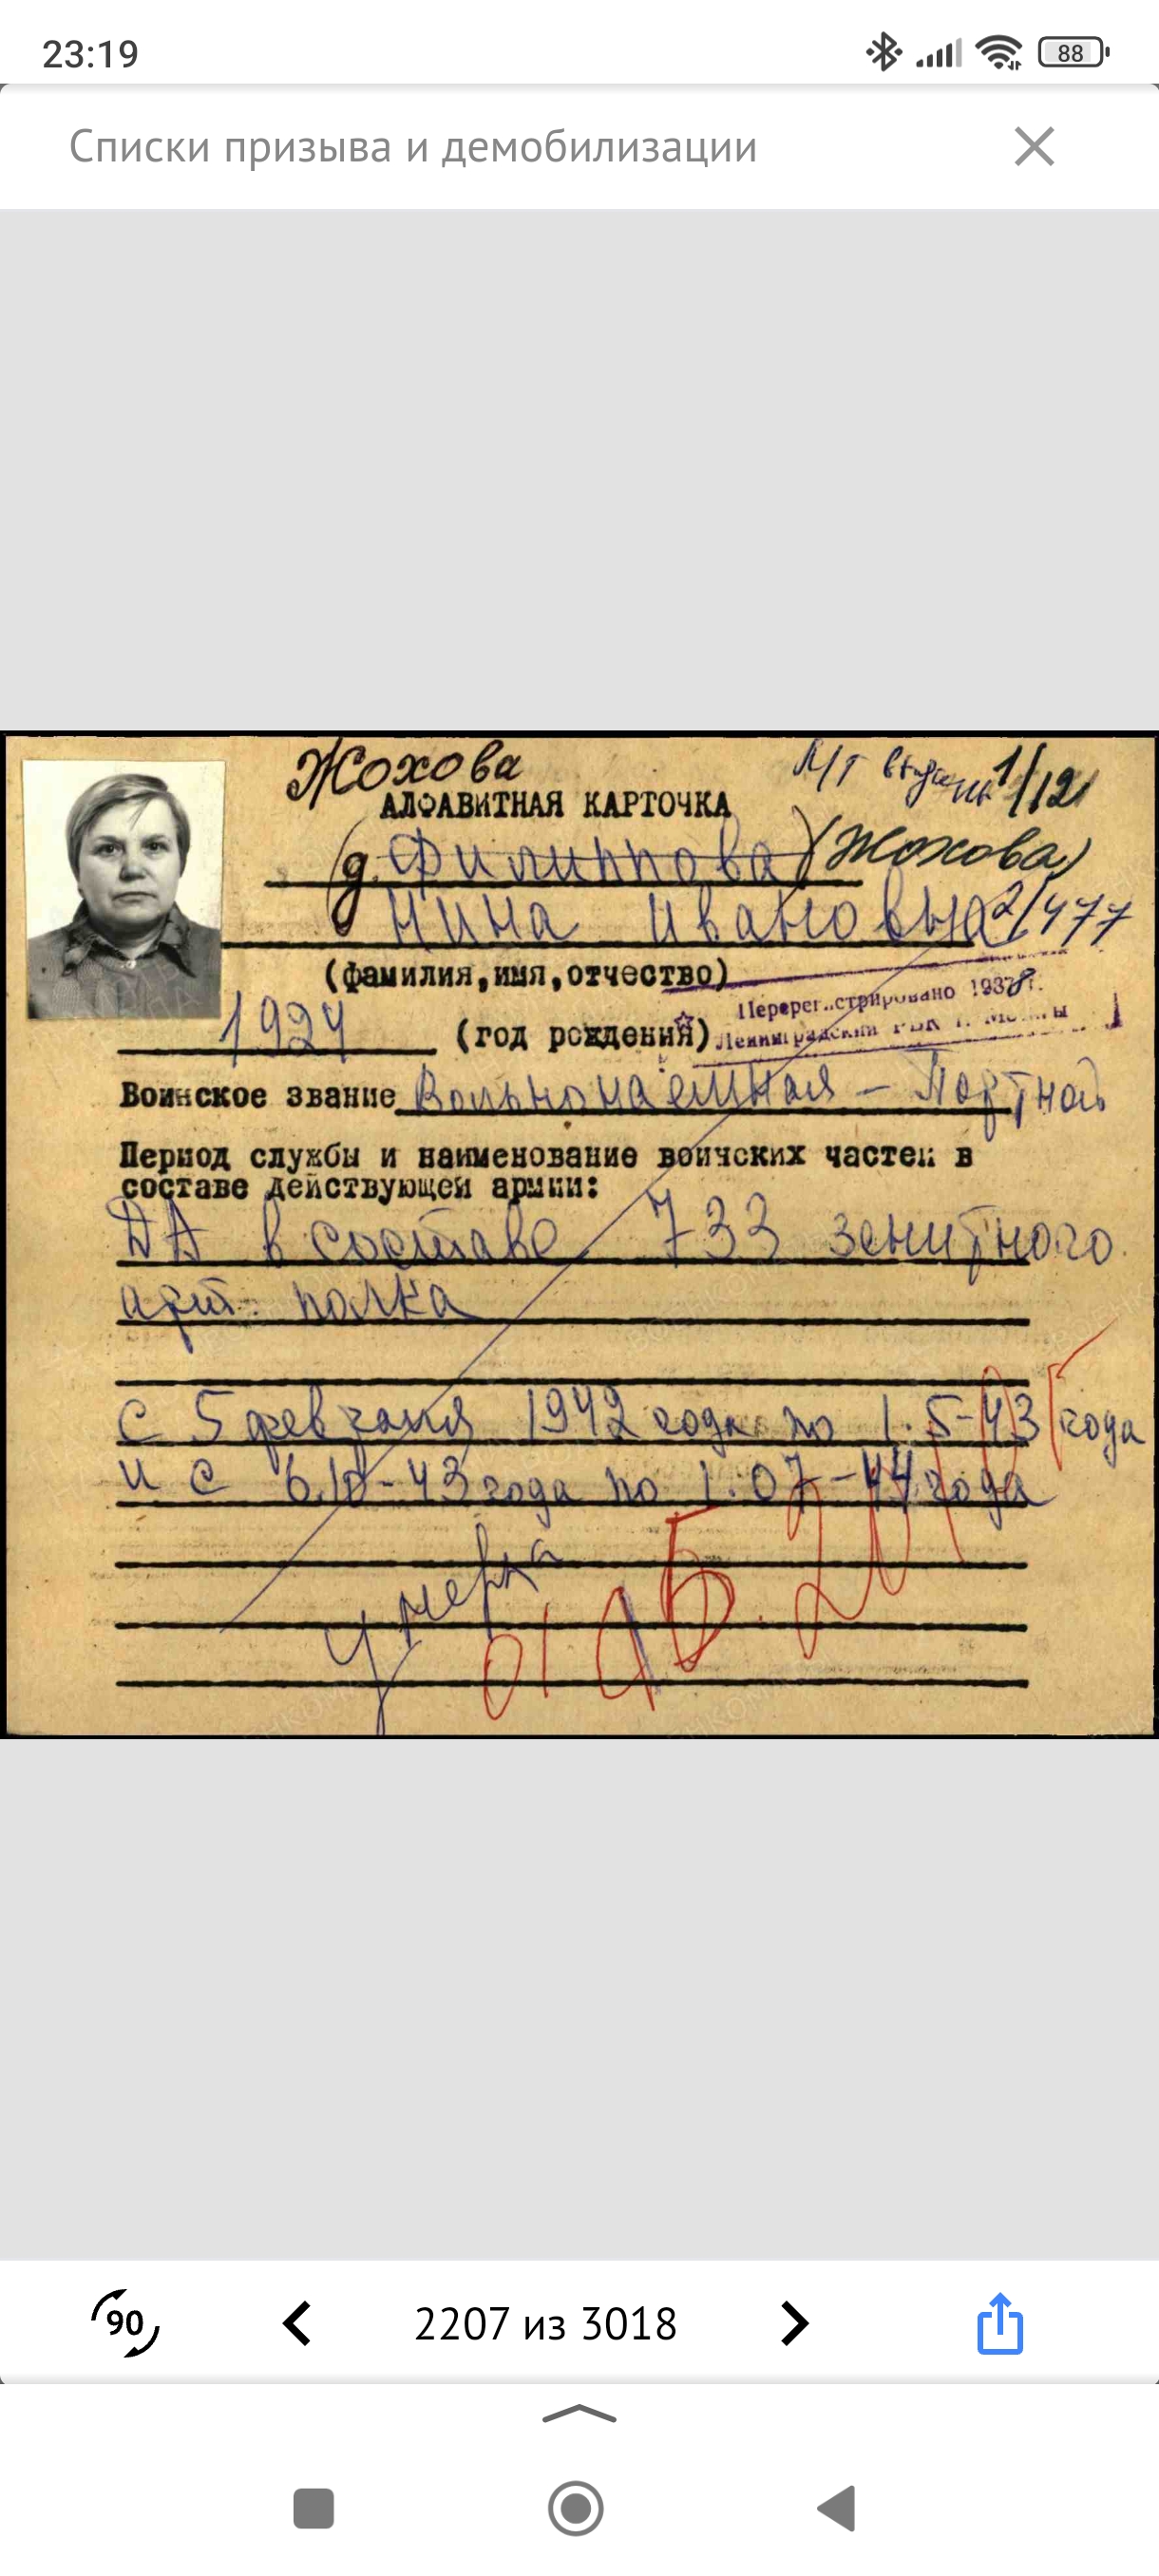 23:19
88
Списки призыва и демобилизации
Жохова
1/12
АЛФАВИТНАЯ КАРТОЧКА
(д. Филиппова) (Жохова)
Нина Ивановна 2/477
(фамилия, имя, отчество)
Перерегистрировано 1978 г.
1924 (год рождения)
Ленинградский РВК г. Москвы
Воинское звание Вольнонаемная - Портной
Период службы и наименование воинских частей в
составе действующей армии:
ДА в составе 733 зенитного
арт. полка
с 5 февраля 1942 года по 1.5-43 года
и с 6.10-43 года по 1.07-44 года
умерла
90
2207 из 3018